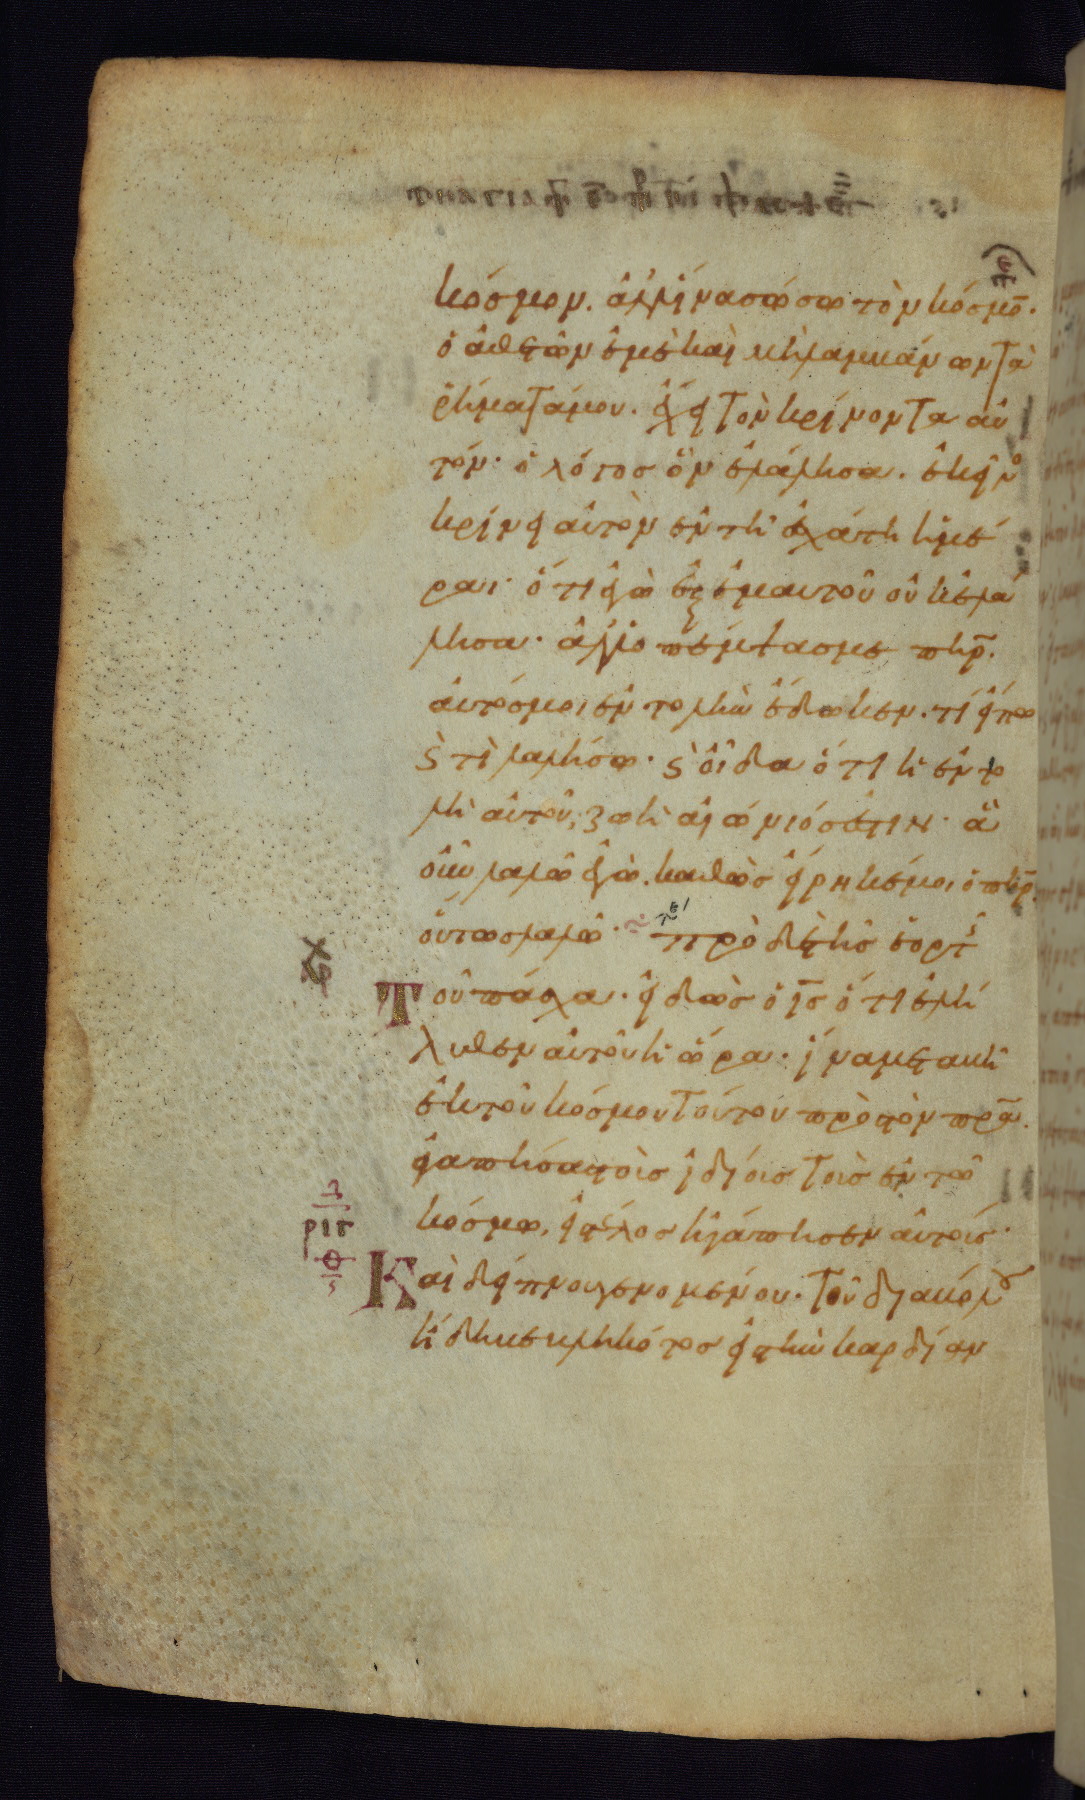 κόσμον. ἀλλ' ἵνα σώσω τὸν κόσμο̄.
ὁ ἀθετῶν ἐμὲ καὶ μὴ λαμβάνων τὰ
ῥήματά μου. ἔχει τὸν κρίνοντα αὐ
τόν· ὁ λόγος ὃν ἐλάλησα. ἐκεῖνο
κρινεῖ αὐτὸν ἐν τῆ ἐσχάτη ἡμέ
ραι· ὅτι ἐγὼ ἐξ ἐμαυτοῦ οὐκ ἐλά
λησα· ἀλλ' ὁ πέμψας με πηρ̄.
αὐτός μοι ἐντολὴν ἔδωκεν. τί εἴπω
ϛ τί λαλήσω· ϛ οἶδα ὅτι ἡ ἐντο
λὴ αὐτοῦ, ζωὴ αἰώνιός ἐστιν· ἃ
οὖν λαλῶ ἐγὼ. καθὼς εἴρηκέ μοι ὁ πηρ̄.
οὕτως λαλῶ· πρὸ δὲ τῆς ἑορτῆς
Τοῦ πάσχα. εἰδὼς ὁ ις̄ ὅτι ἐλή
λυθεν αὐτοῦ ἡ ὥρα. ἵνα μεταβῆ
ἐκ τοῦ κόσμου τούτου πρὸς τὸν πρᾱ.
ἀγαπήσας τοὺς ἰδίους τοὺς ἐν τῶ
κόσμω. εἰς τέλος ἠγάπησεν αὐτούς·
ριγ
Καὶ δείπνου γενομένου. τοῦ διαβόλου
ἤδη βεβληκότος εἰς τὴν καρδίαν